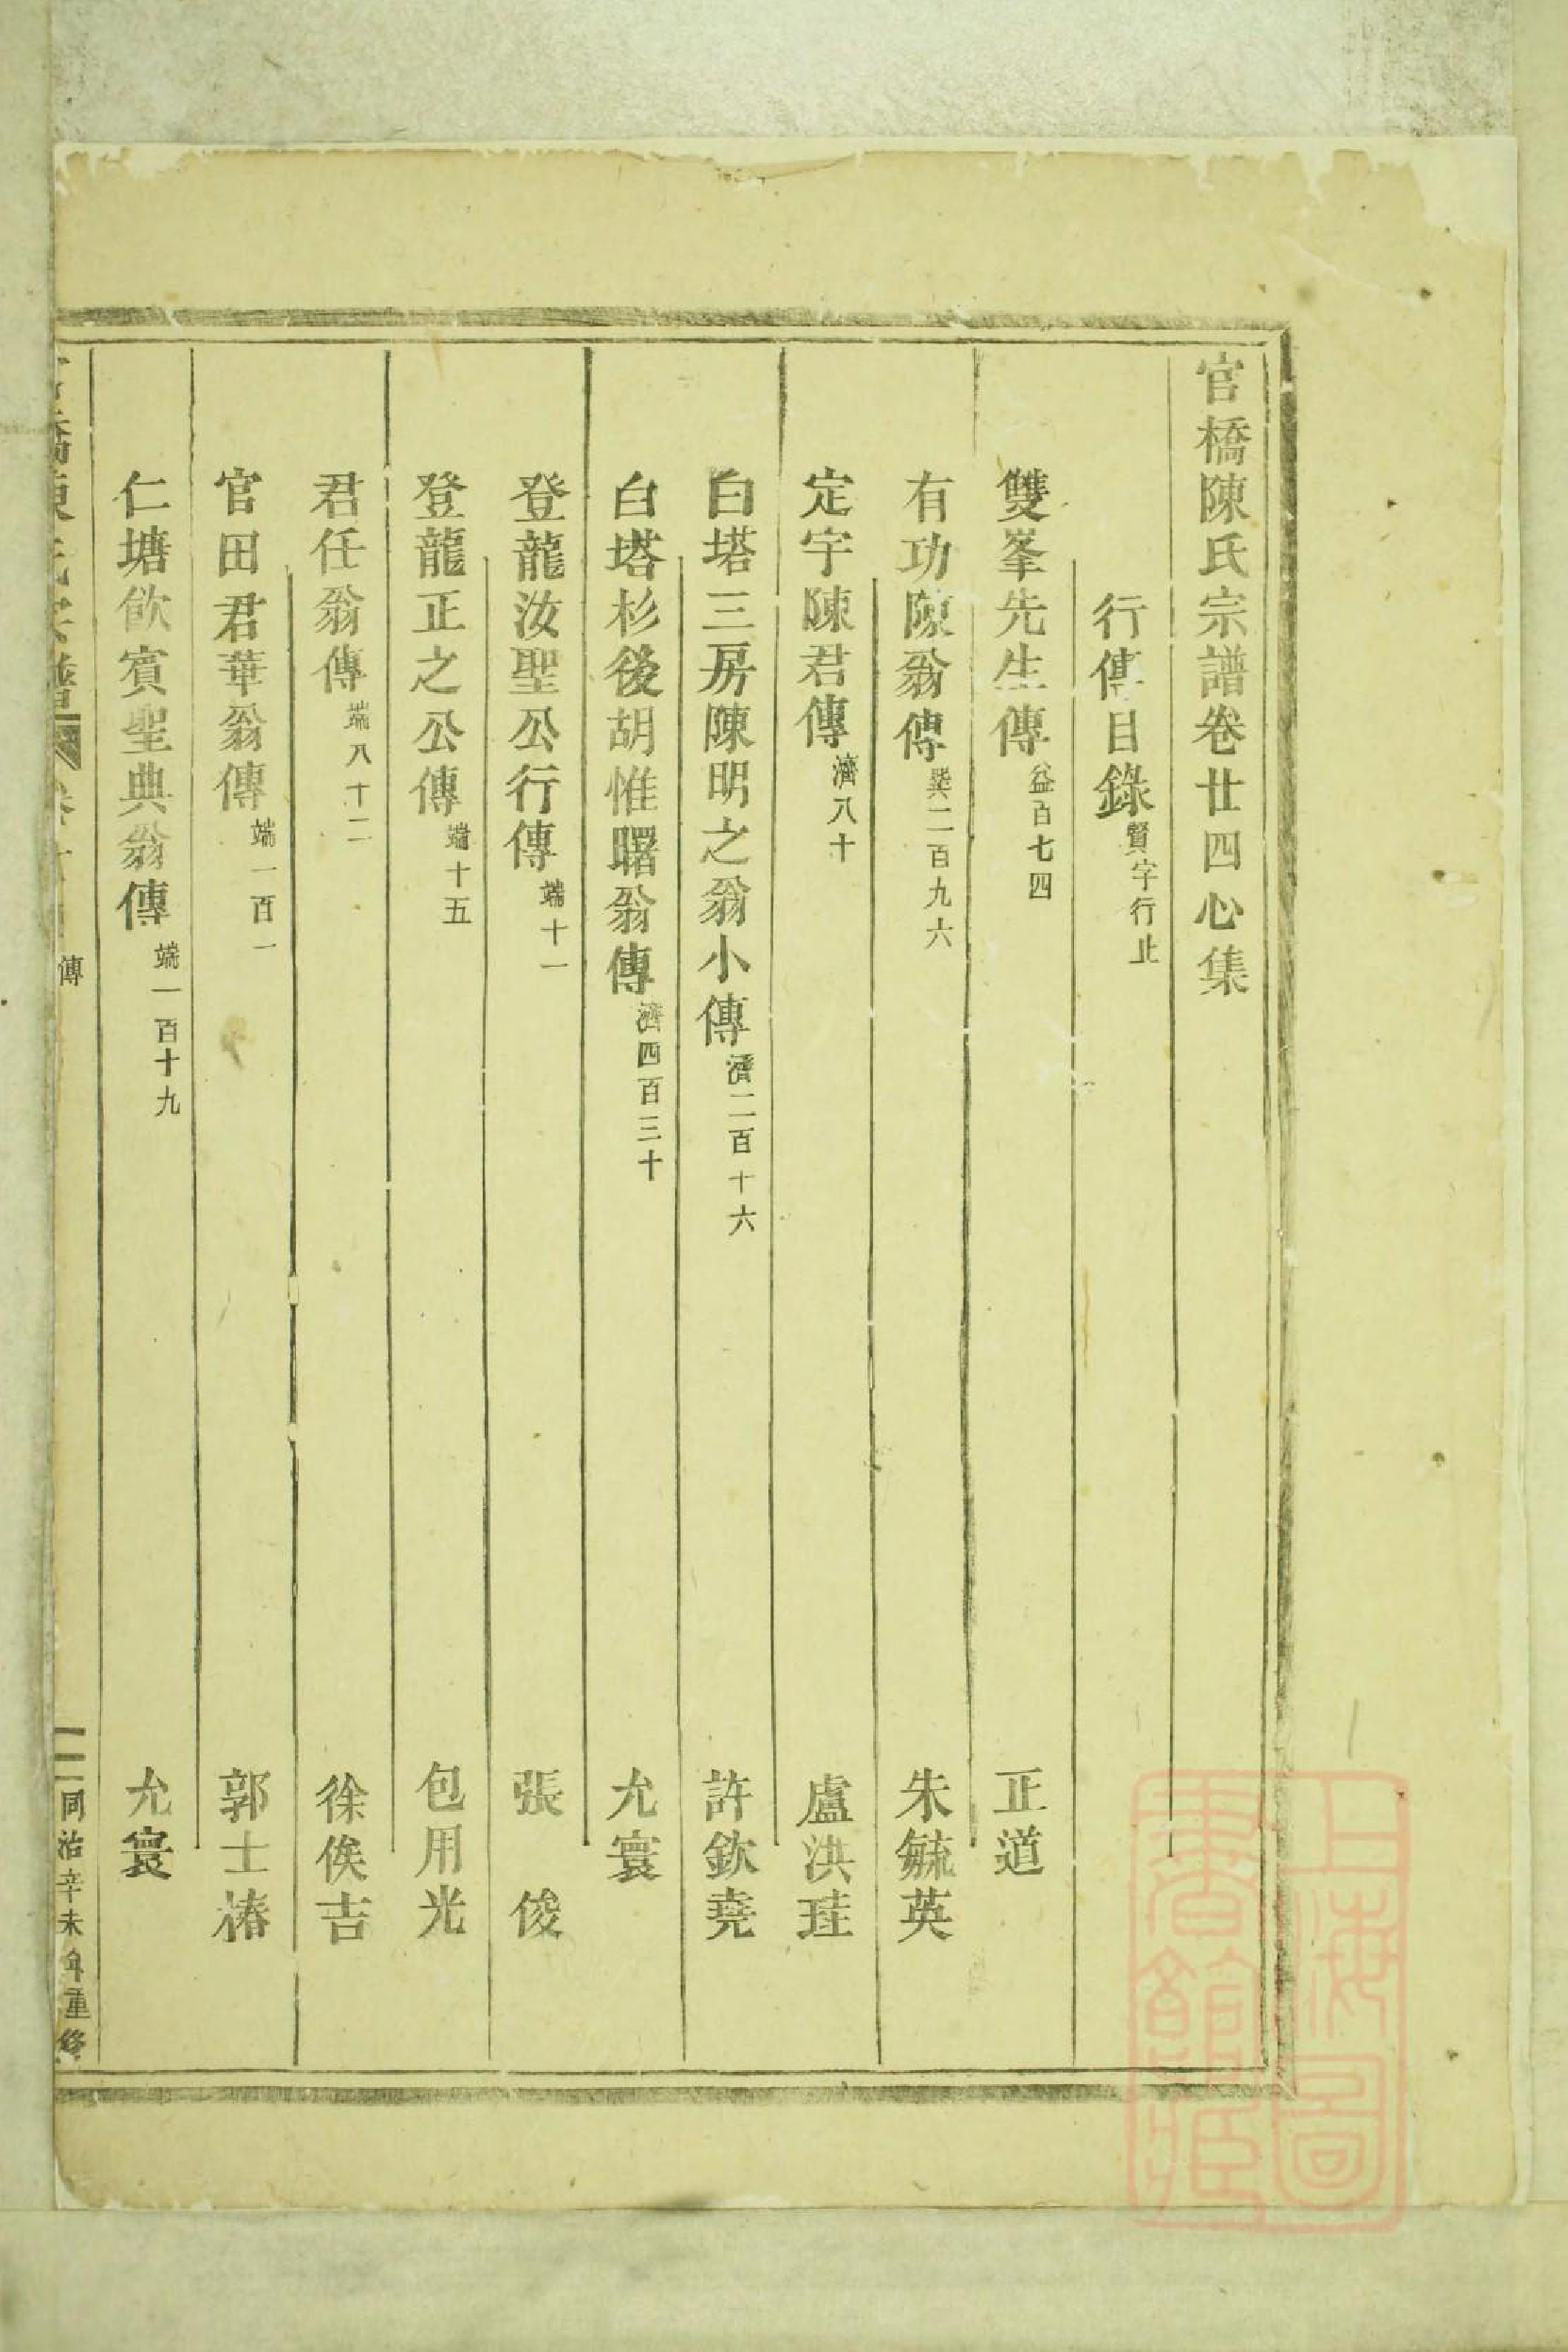 官橋陳氏宗譜卷廿四心集
行傳目錄賢字行止
雙峯先生傳益百七四 正道
有功陳翁傳巽二百九六 朱毓英
定宇陳君傳濟八十 盧洪珪
白塔三房陳明之翁小傳濟二百十六 許欽堯
白塔杉後胡惟曙翁傳濟四百三十 允寰
登龍汝聖公行傳端十一 張俊
登龍正之公傳端十五 包用光
君任翁傳端八十二 徐俟吉
官田君華翁傳端一百一 郭士椿
仁塘飲賓聖典翁傳端一百十九 允寰
傳 同治辛未年重修
上海圖書館藏